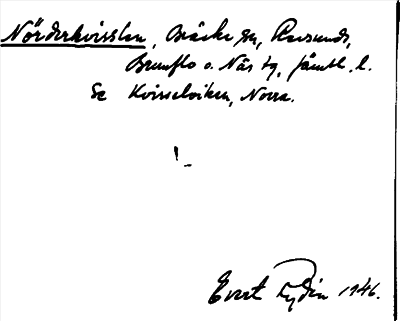 Nörderkvisslen, Bräcke sn, Revsunds,
Brunflo o. Näs tg, Jämtl. l.
Se Kvisselviken, Norra.
!
Evert Lydin 1946.